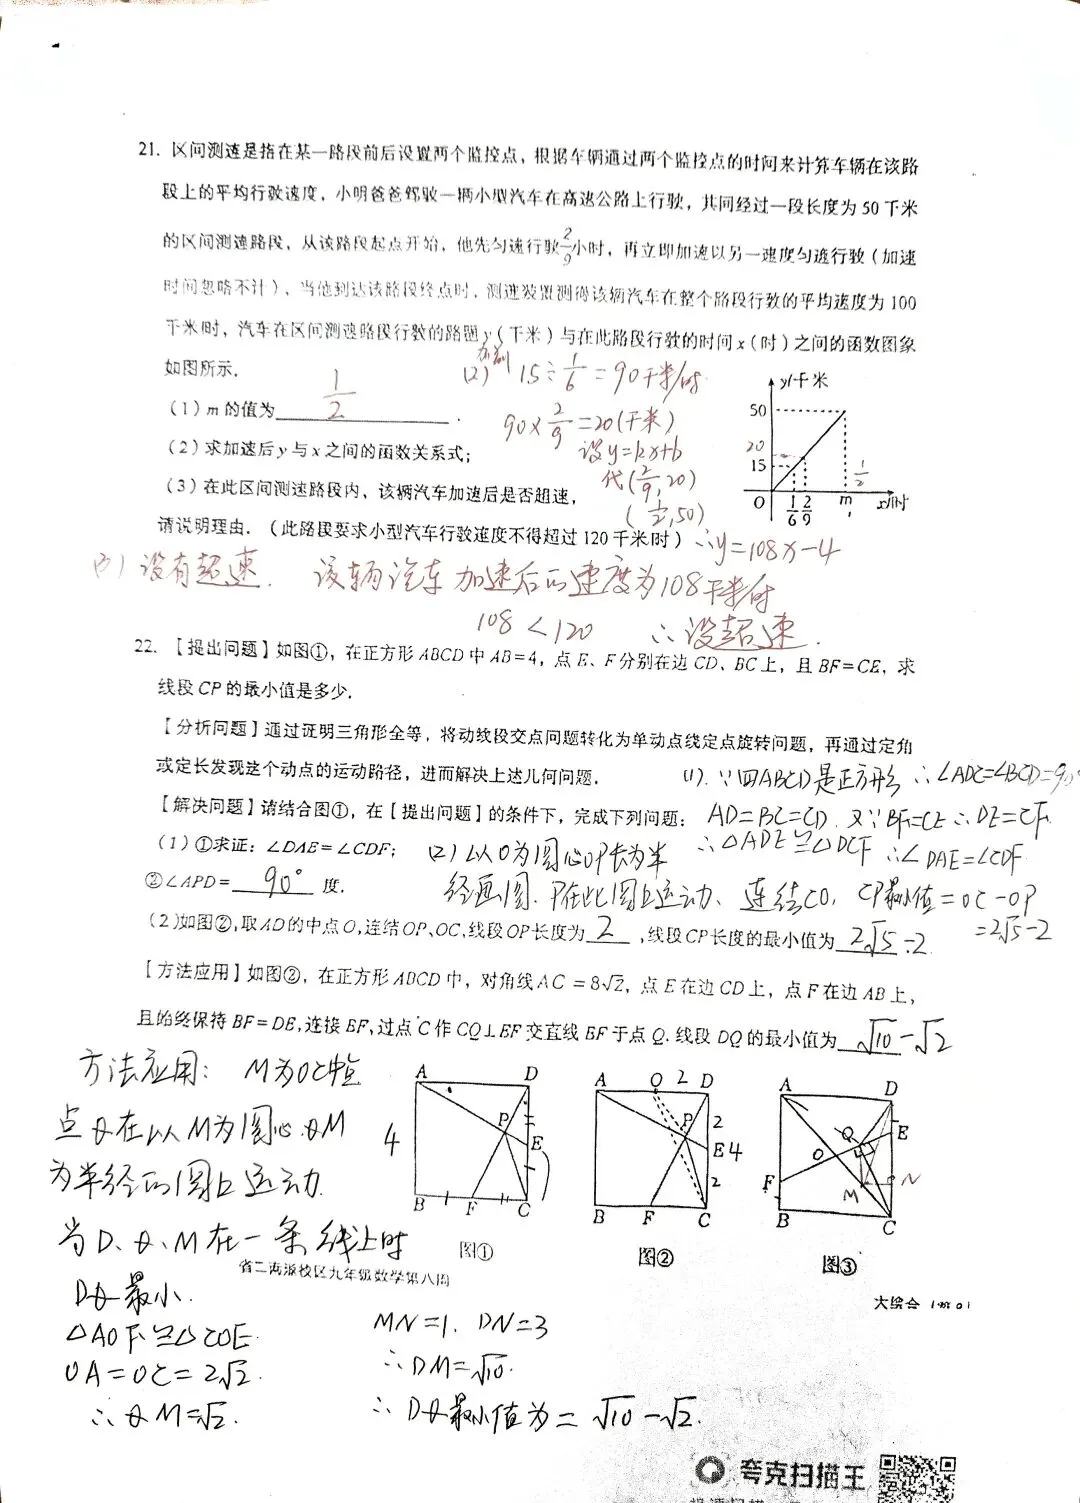 21. 区间测速是指在某一路段前后设置两个监控点，根据车辆通过两个监控点的时间来计算车辆在该路
段上的平均行驶速度，小明爸爸驾驶一辆小型汽车在高速公路上行驶，其间经过一段长度为50千米
的区间测速路段，从该路段起点开始，他先匀速行驶2/9小时，再立即加速以另一速度匀速行驶（加速
时间忽略不计），当他到达该路段终点时，测速装置测得该辆汽车在整个路段行驶的平均速度为100
千米/时，汽车在区间测速路段行驶的路程y（千米）与在此路段行驶的时间x（时）之间的函数图象
如图所示.
加前
(2) 15÷1/6=90千米/时
(1) m的值为 1/2 .
90×2/9=20(千米)
(2) 求加速后y与x之间的函数关系式；
设y=kx+b
代(2/9,20)
(3) 在此区间测速路段内，该辆汽车加速后是否超速，
(1/2,50)
请说明理由.（此路段要求小型汽车行驶速度不得超过120千米/时）
∴y=108x-4
y/千米
50
20
15
O
1/6
2/9
m
1/2
x/时
(3) 没有超速. 该辆汽车加速后的速度为108千米/时
108<120 ∴没超速.
22. 【提出问题】如图①，在正方形ABCD中AB=4，点E、F分别在边CD、BC上，且BF=CE，求
线段CP的最小值是多少.
【分析问题】通过证明三角形全等，将动线段交点问题转化为单动点线定点旋转问题，再通过定角
或定长发现这个动点的运动路径，进而解决上述几何问题.
(1). ∵四ABCD是正方形 ∴∠ADC=∠BCD=90°
【解决问题】请结合图①，在【提出问题】的条件下，完成下列问题：
AD=BC=CD. 又∵BF=CE ∴DE=CF.
(1) ①求证：∠DAE=∠CDF；
∴△ADE≌△DCF ∴∠DAE=∠CDF
(2) 以O为圆心OP长为半
②∠APD= 90° 度.
径画圆. P在此圆上运动、连结CO, CP最小值=OC-OP
=2√5-2
(2)如图②,取AD的中点O,连结OP、OC,线段OP长度为 2 ,线段CP长度的最小值为 2√5-2.
【方法应用】如图③，在正方形ABCD中，对角线AC=8√2，点E在边CD上，点F在边AB上，
且始终保持BF=DE,连接EF,过点C作CQ⊥EF交直线EF于点Q.线段DQ的最小值为 √10-√2
方法应用: M为OC中点
点Q在以M为圆心.QM
为半径的圆上运动.
当D、Q、M在一条线上时
DQ最小.
△AOF≌△COE.
OA=OC=2√2.
∴QM=√2.
MN=1. DN=3
∴DM=√10.
∴DQ最小值为=√10-√2.
A
D
P
E
4
B
F
C
图①
A
O
2
D
P
2
E
4
2
B
F
C
图②
A
D
Q
E
O
F
M
N
B
C
图③
省二海派校区九年级数学第八周
大综合
夸克扫描王